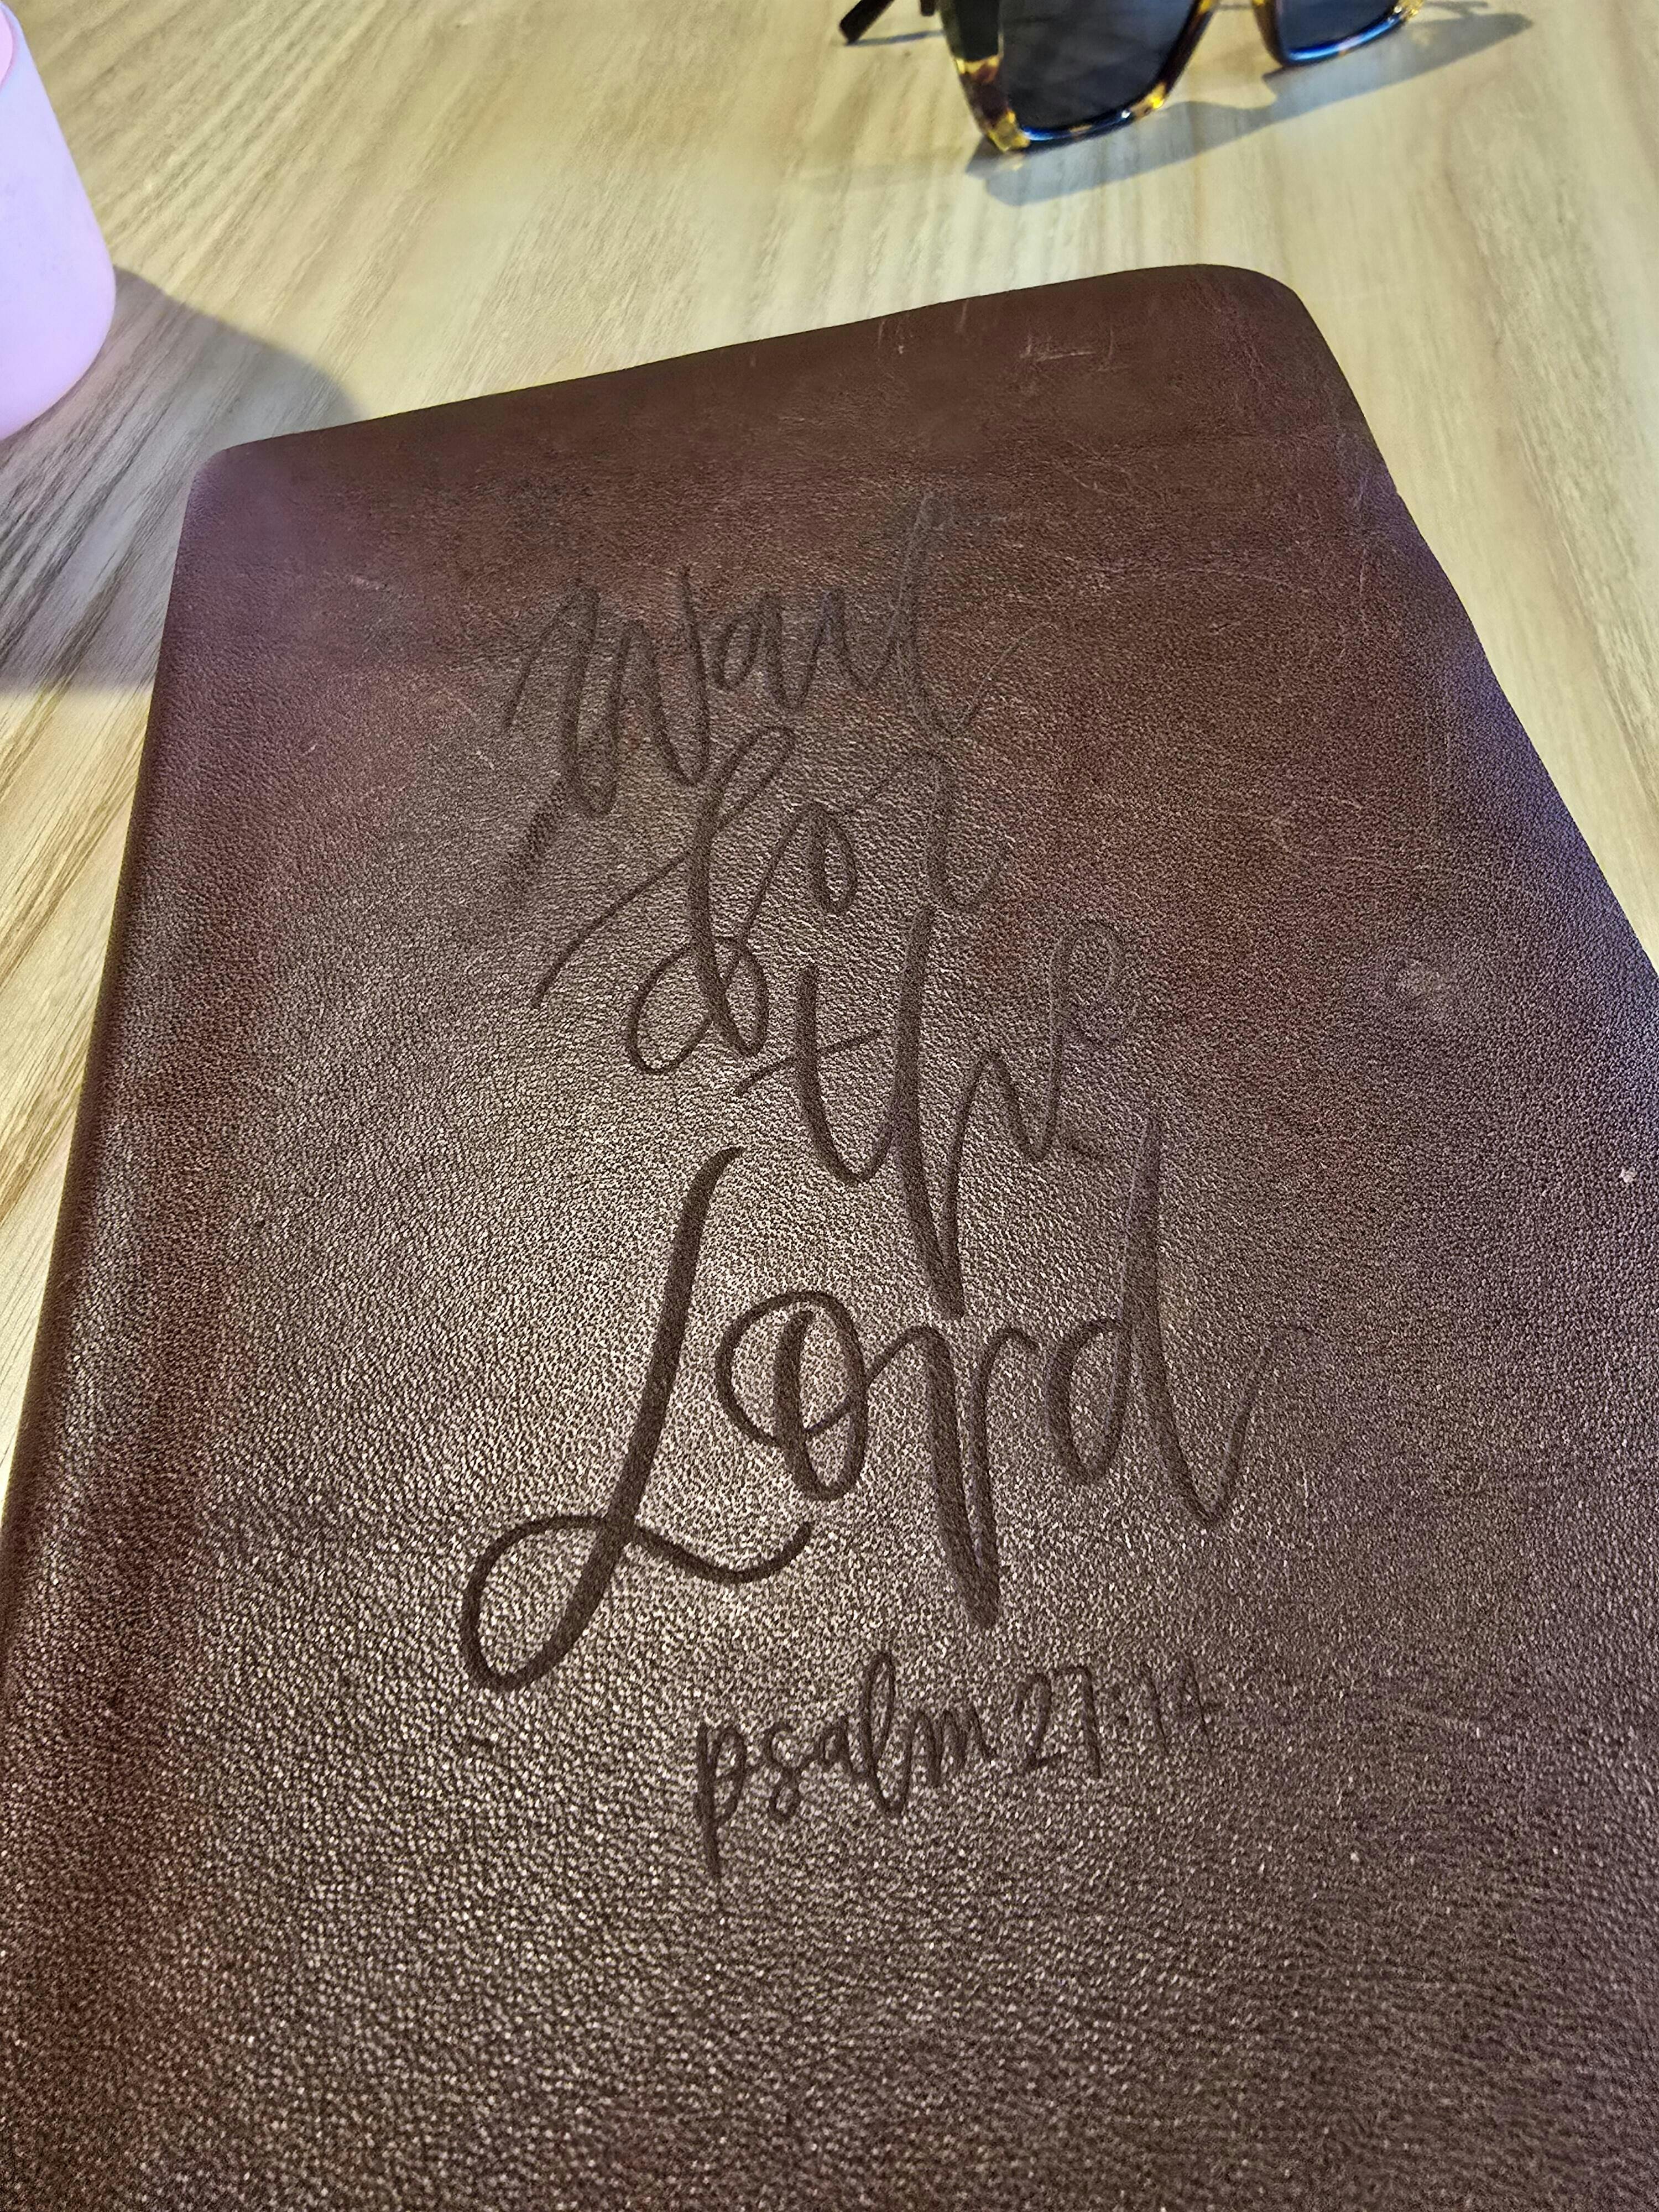 Wait
for
the
Lord
psalm 27:14